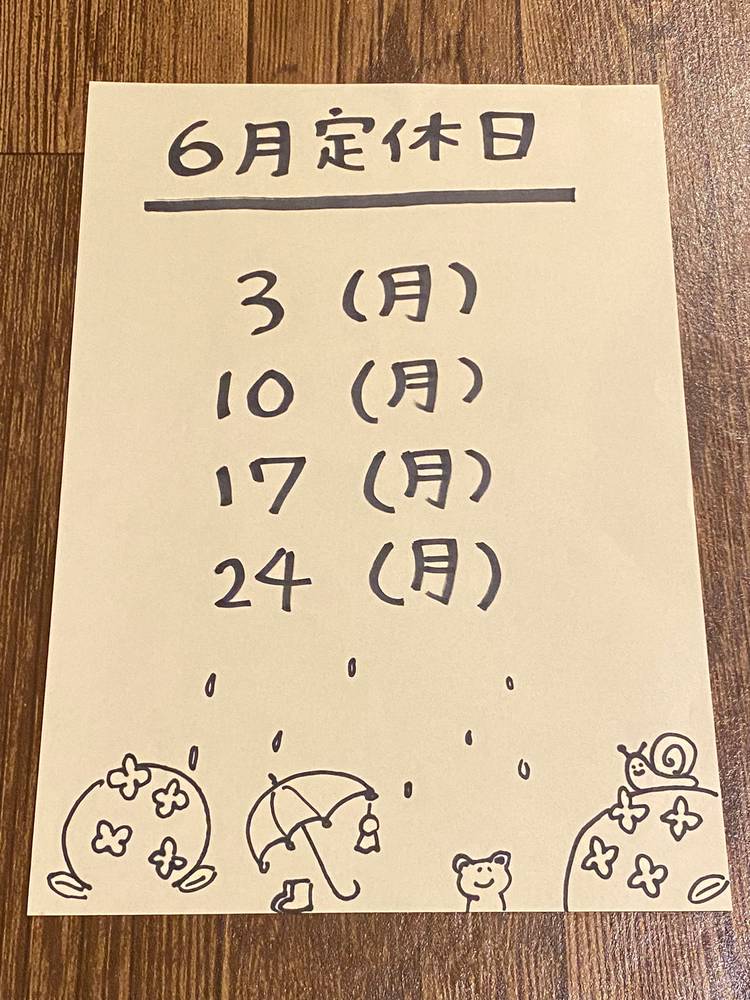 6月定休日
3 (月)
10 (月)
17 (月)
24 (月)